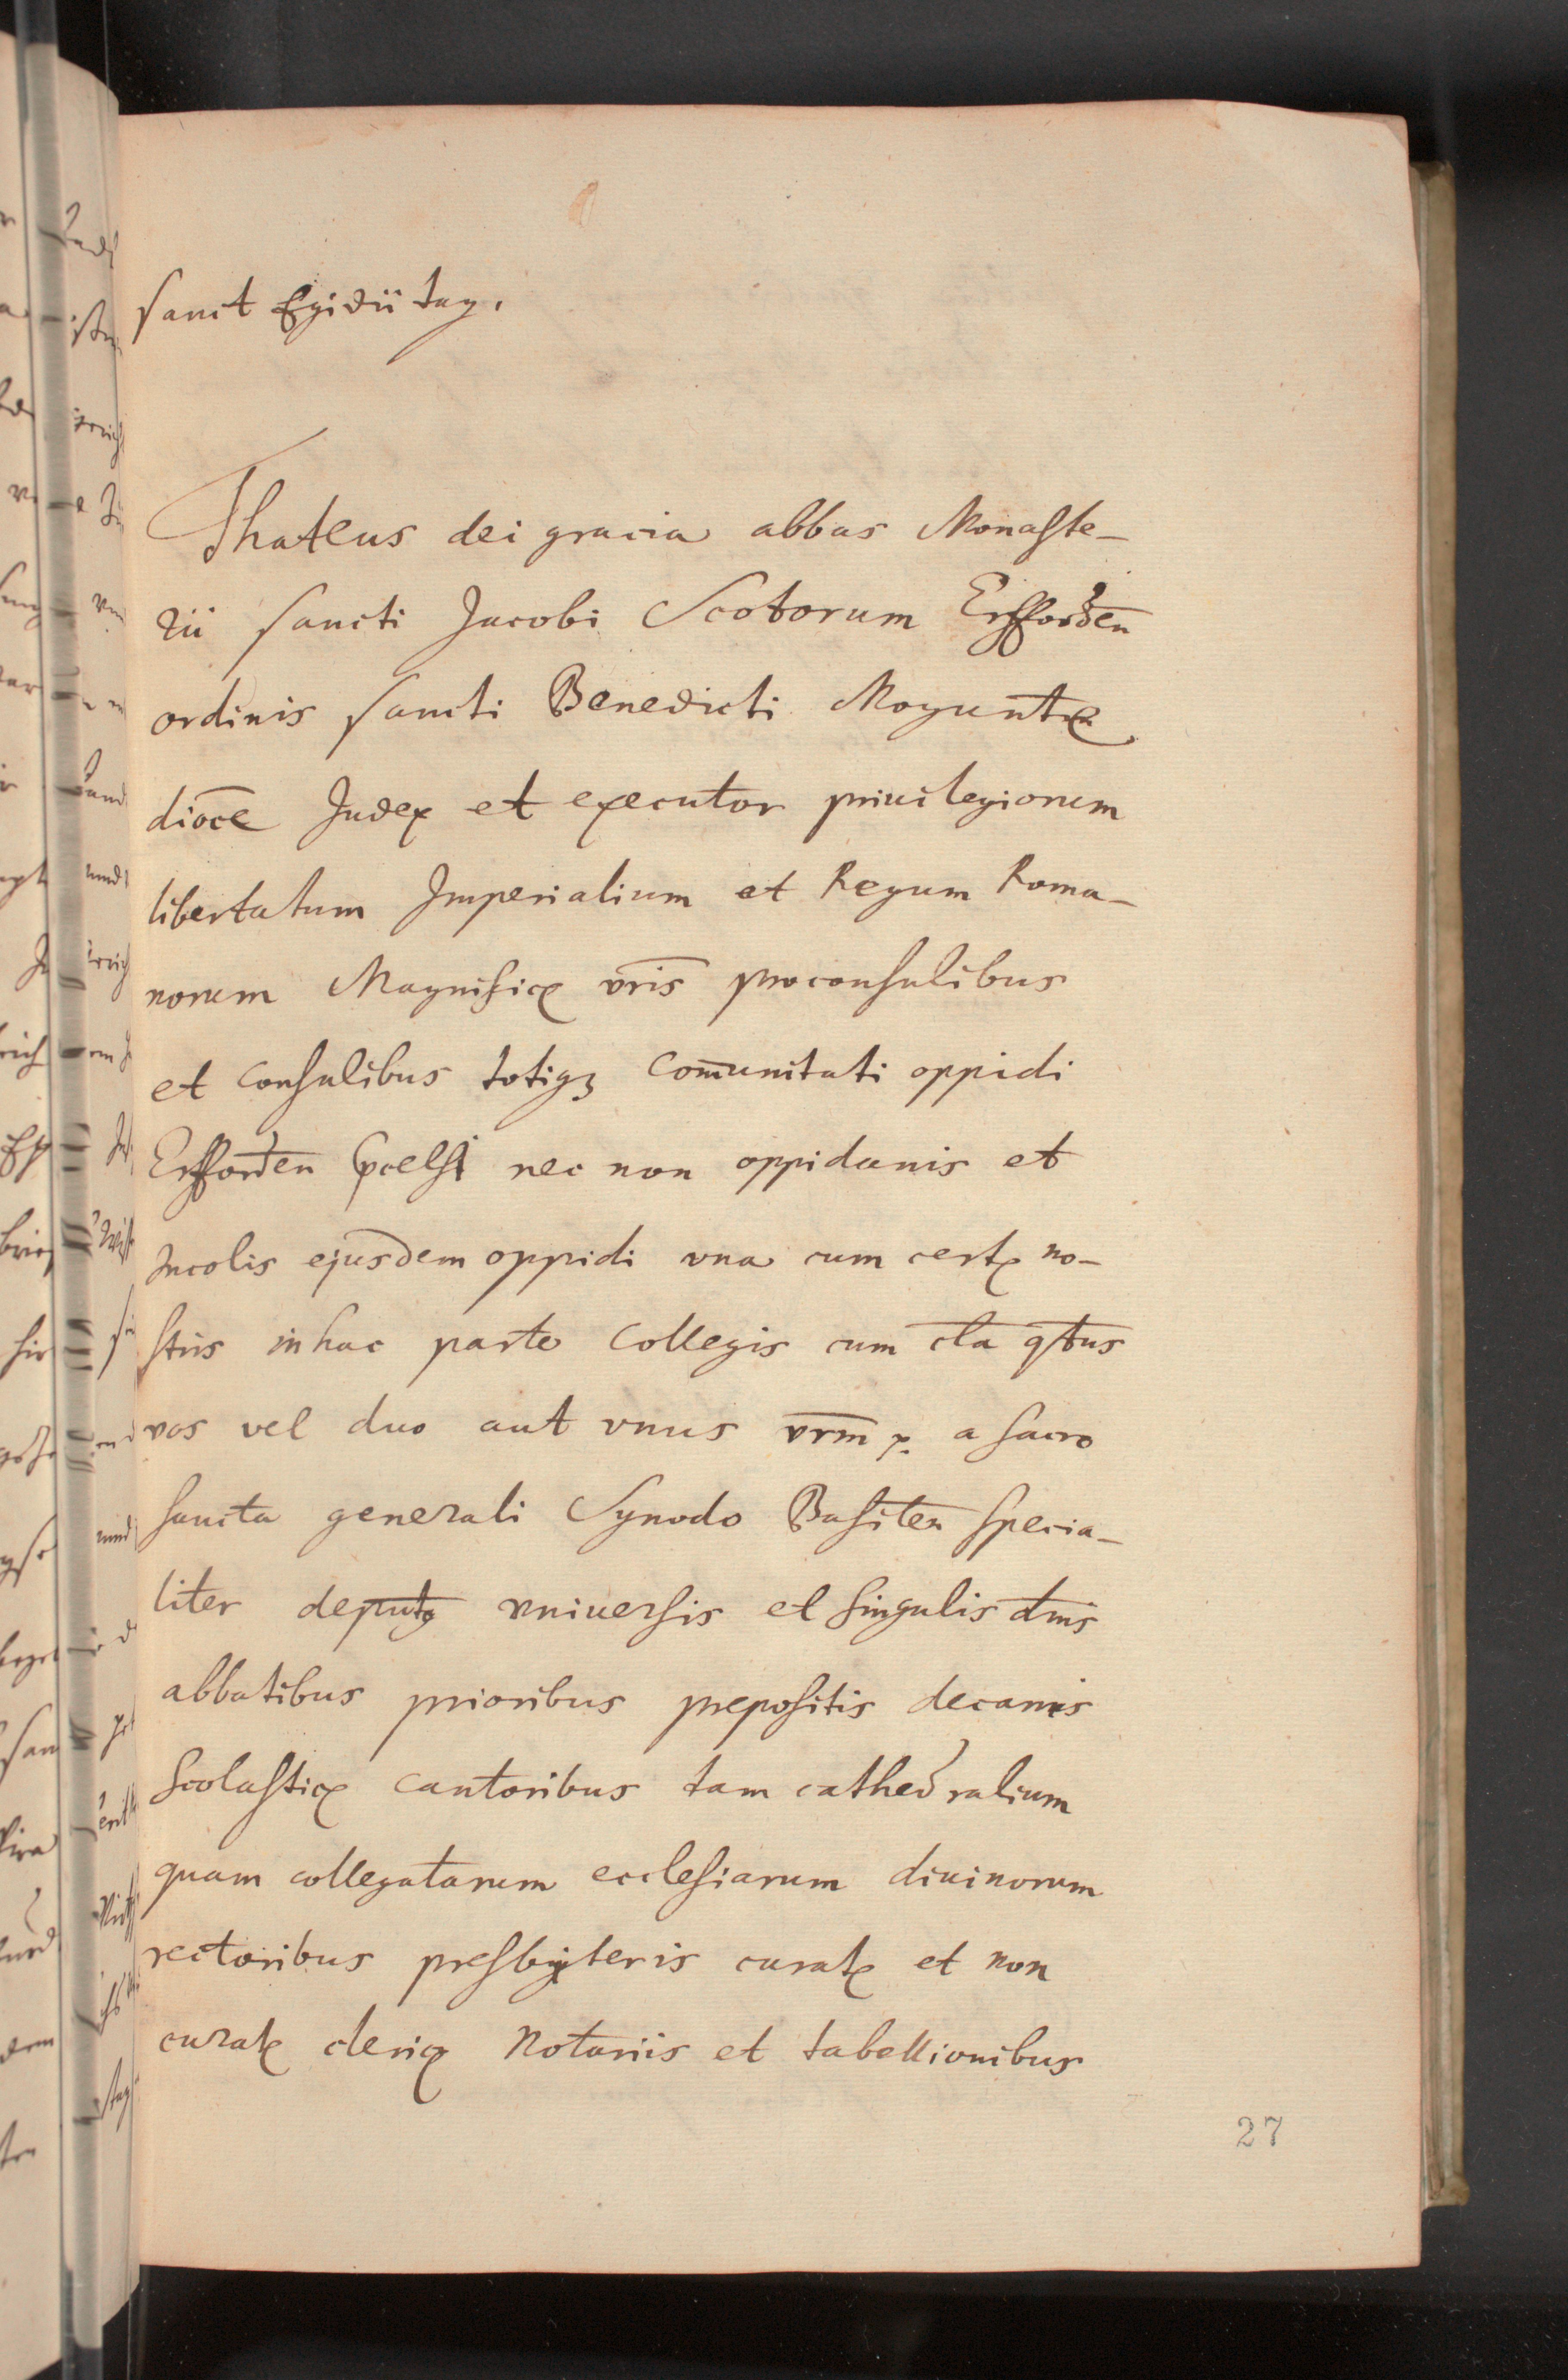 sanct Egidii tag.
Thateus dei gracia abbas Monaste-
rii sancti Jacobi Scotorum Erfforden̅
ordinis sancti Benedicti Moguntꝭ
dioce̅ Judex et executor priuilegiorum
libertatum Imperialium et Regum Roma-
norum Magnificꝭ vris̅ proconsulibus
et Consulibus totiqꝫ Com̅unitati oppidi
Erfforden nec non oppidanis et
Incolis ejusdem oppidi vna cum certꝭ no-
stris in hac parte Collegis cum cla̅ qt̅us
vos vel duo aut vnus vrm̅ a sacro
sancta generali Synodo Basilen̅ specia-
liter deput̅ vniuersis et singulis dn̅is
abbatibus prioribus prepositis decanis
Scolasticꝭ cantoribus tam cathedralium
quam collegatarum ecclesiarum diuinorum
rectoribus presbyteris curatꝭ et non
curatꝭ clericꝭ Notariis et tabellionibus
27